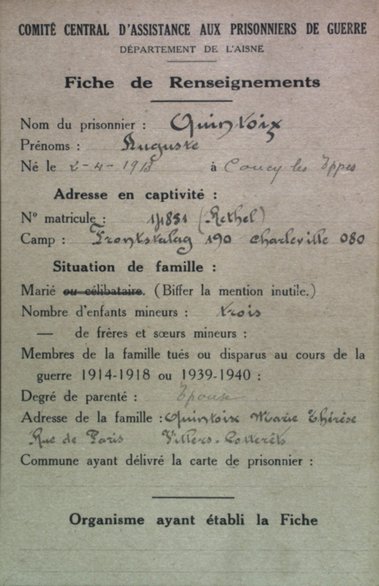 COMITÉ CENTRAL D'ASSISTANCE AUX PRISONNIERS DE GUERRE
DÉPARTEMENT DE L'AISNE
Fiche de Renseignements
Nom du prisonnier : Quintoix
Prénoms : Auguste
Né le 2-4-1918 à Coucy les Eppes
Adresse en captivité :
N° matricule : (Rethel)
Camp : Frontstalag 190 Charleville 080
Situation de famille :
Marié ou célibataire. (Biffer la mention inutile.)
Nombre d'enfants mineurs : trois
— de frères et sœurs mineurs :
Membres de la famille tués ou disparus au cours de la
guerre 1914-1918 ou 1939-1940 :
Degré de parenté : Epouse
Adresse de la famille : Quintoix Marie Thérèse
Rue de Paris Villers-Cotterêts
Commune ayant délivré la carte de prisonnier :
Organisme ayant établi la Fiche